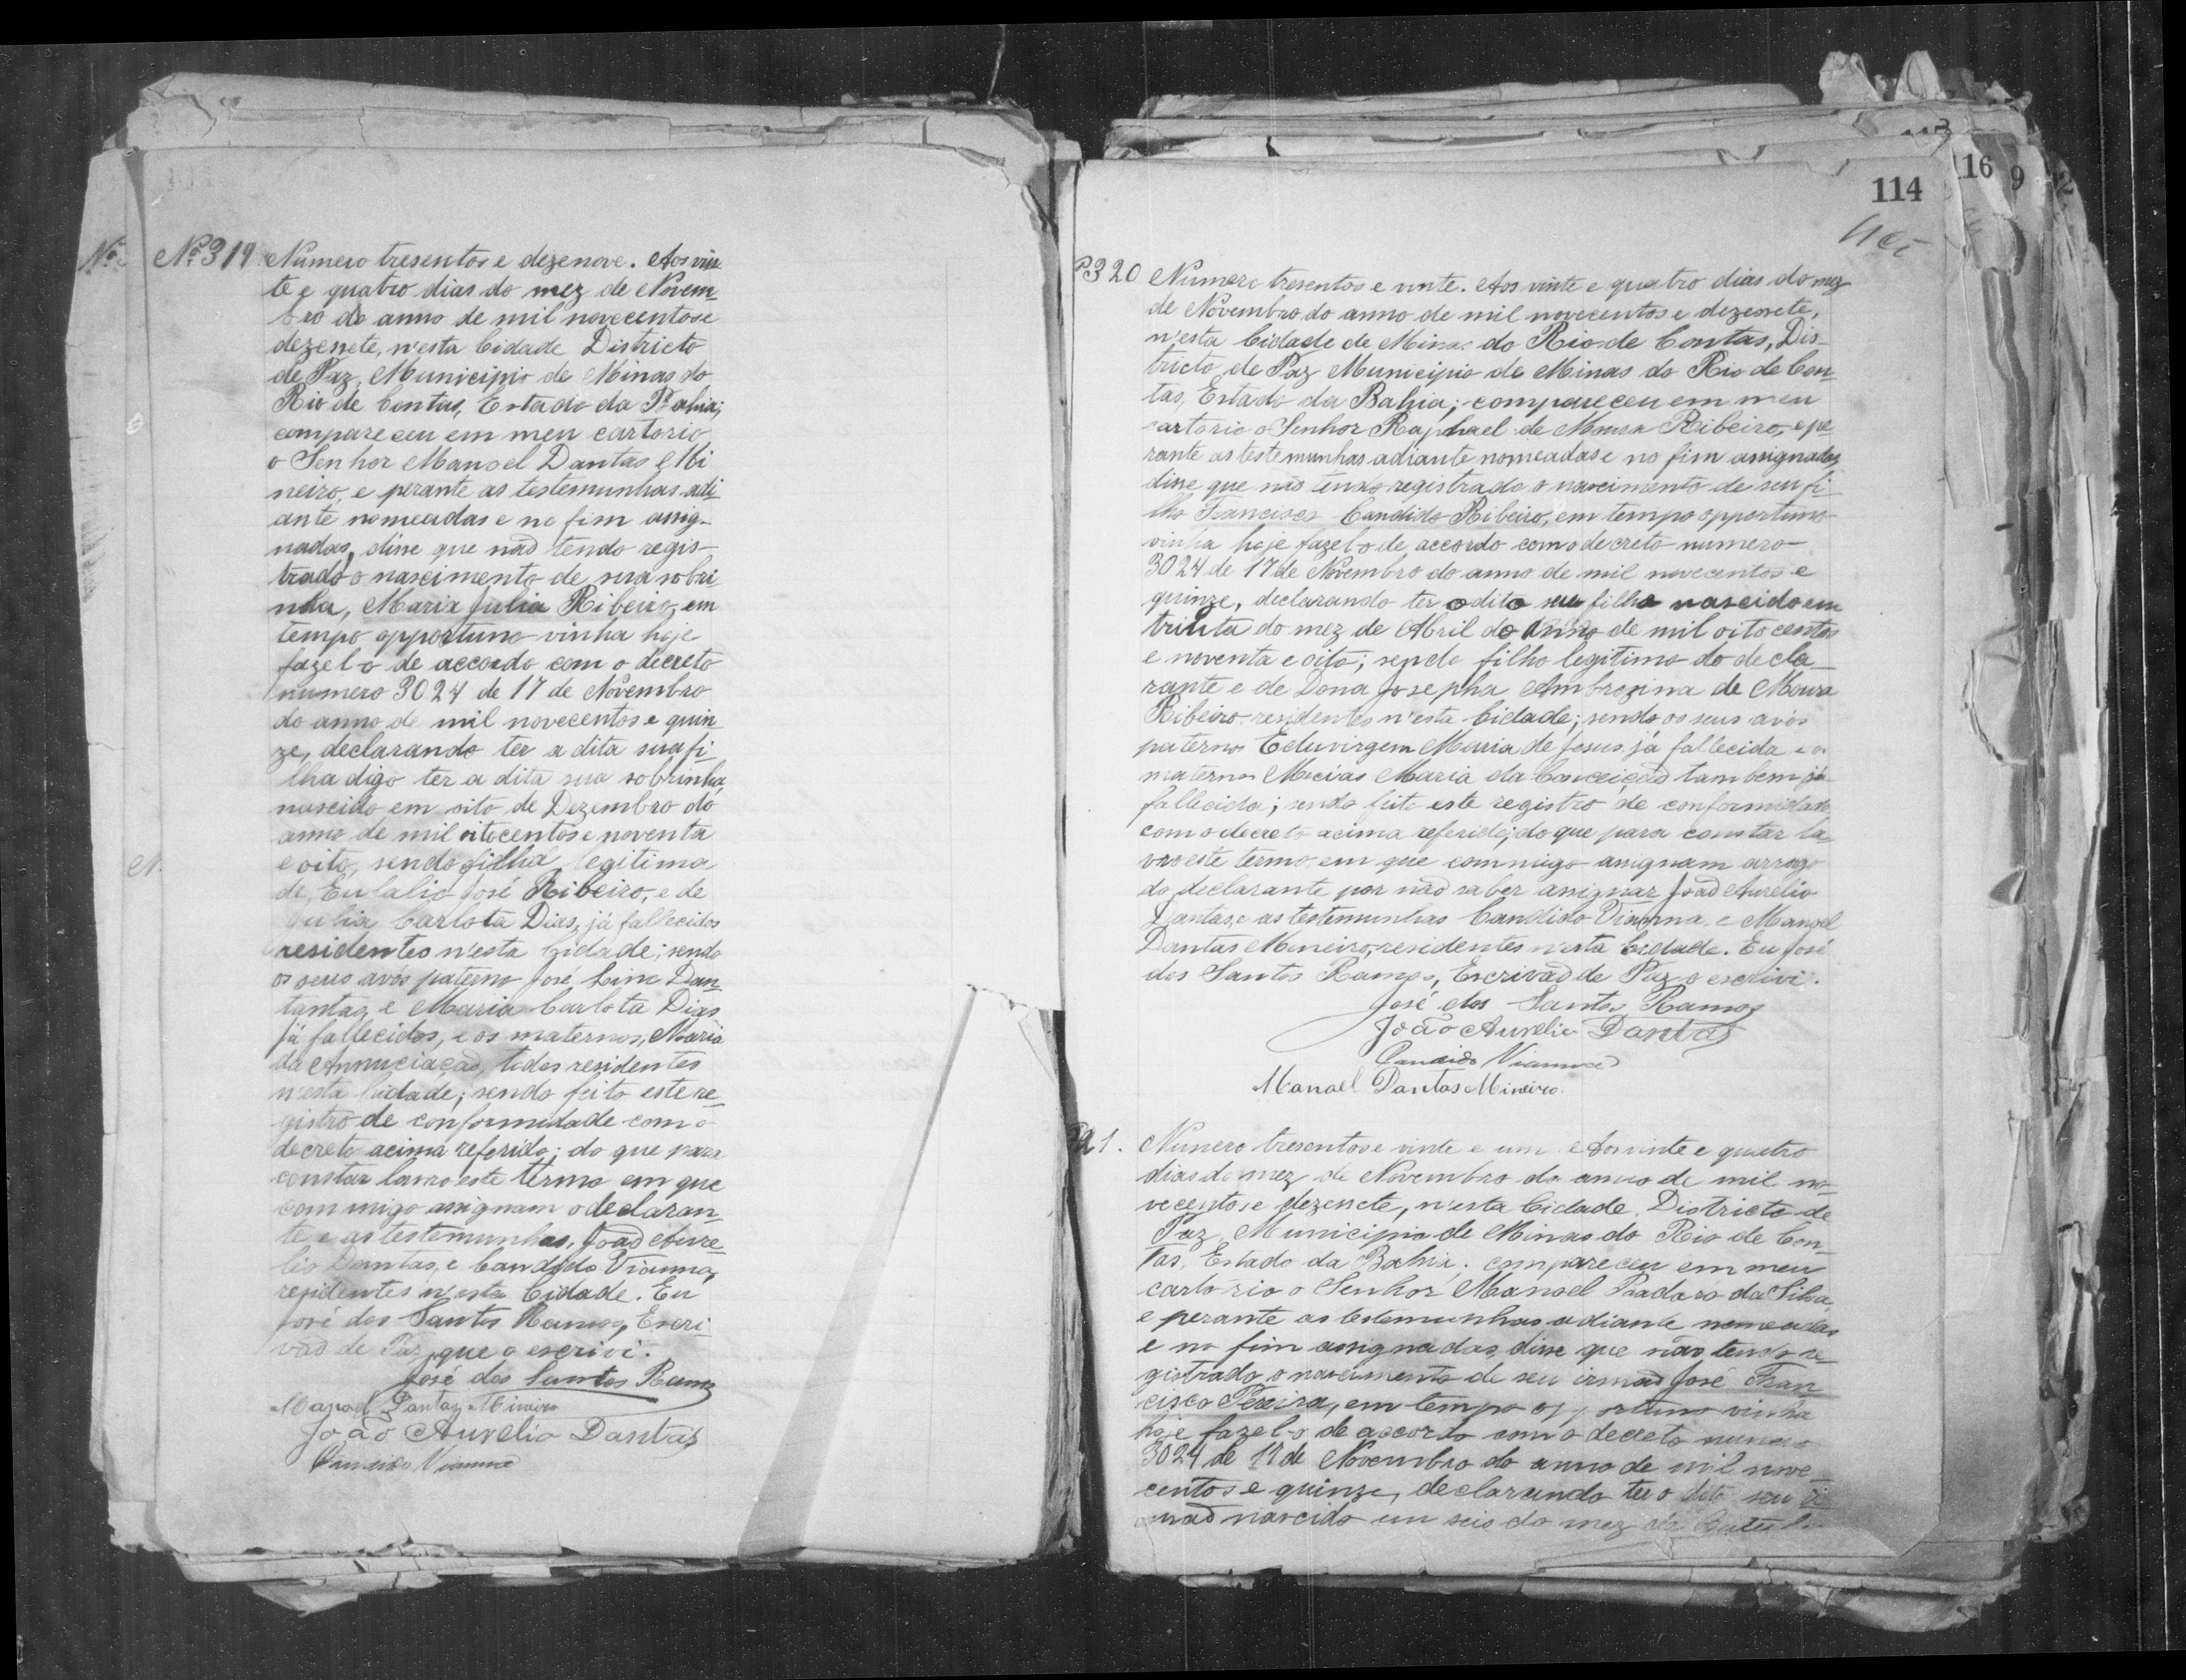 Nº 319 Numero tresentos e dezenove. Aos vin
te e quatro dias do mez de Novem_
bro do anno de mil novecentos e
dezesete, n'esta Cidade Districto
de Paz, Municipio de Minas do
Rio de Contas, Estado da Bahia;
compareceu em meu cartorio
o Senhor Manoel Dantas Mi
neiro, e perante as testemunhas adi_
ante nomeadas e no fim assig_
nadas, disse que não tendo regis_
trado o nascimento de sua sobri
nha, Maria Julia Ribeiro, em
tempo opportuno vinha hoje
fazel-o de accordo com o decreto
numero 3024 de 17 de Novembro
do anno de mil novecentos e quin
ze, declarando ter a dita sua fi_
lha digo ter a dita sua sobrinha,
nascido em oito de Dezembro do
anno de mil oitocentos e noventa
e oito, sendo filha legitima
de, Eulalio José Ribeiro, e de
Julia Carlota Dias, já fallecidos
residentes n'esta Cidade; sendo
os seus avós paterno José Lim Dan_
tantas, e Maria Carlota Dias
já fallecidos, e os maternos, Maria
da Annuciação, todos residentes
n'esta Cidade; sendo feito este re_
gistro de conformidade com o
decreto acima referido; do que para
constar lavro este termo em que
commigo assignam o declaran_
te e as testemunhas, João Aure_
lio Dantas, e Candido Vianna,
residentes n'esta Cidade. Eu
José dos Santos Ramos, Escri_
vão de Paz, que o escrivi.
José dos Santos Ramos
Manoel Dantas Mineiro
João Aurelio Dantas
Candido Vianna
114
320 Numero tresentos e vinte. Aos vinte e quatro dias do mez
de Novembro do anno de mil novecentos e dezesete,
n'esta Cidade de Minas do Rio de Contas, Dis_
tricto de Paz Municipio de Minas do Rio de Con_
tas, Estado da Bahia; compareceu em meu
cartorio o Senhor Raphael de Moura Ribeiro, e pe_
rante as testemunhas adiante nomeadas e no fim assignadas,
disse que não tendo registrado o nascimento de seu fi_
lho Francisco Candido Ribeiro, em tempo opportuno
vinha hoje fazel-o de accordo com o decreto numero
3024 de 17 de Novembro do anno de mil novecentos e
quinze, declarando ter o dito seu filho nascido em
trinta do mez de Abril do Anno de mil oito centos
e noventa e oito; sendo filho legitimo do decla_
rante e de Dona Josepha Ambrozina de Moura
Ribeiro residentes n'esta Cidade; sendo os seus avós
paternos Eduvirgem Maria de Jesus, já fallecida e os
maternos Maria da Conceição tambem já
fallecida; sendo feito este registro de conformidade
com o decreto acima referido; do que para constar la_
vro este termo em que commigo assignam arrogo
do declarante por não saber assignar João Aurelio
Dantas, e as testemunhas Candido Vianna, e Manoel
Dantas Mineiro, residentes n'esta Cidade. Eu José
dos Santos Ramos, Escrivão de Paz, o escrivi.
José dos Santos Ramos
João Aurelio Dantas
Candido Vianna
Manoel Dantas Mineiro.
21. Numero tresentos e vinte e um. Aos vinte e quatro
dias do mez de Novembro do anno de mil no_
vecentos e dezesete, n'esta Cidade, Districto de
Paz, Municipio de Minas do Rio de Con_
tas, Estado da Bahia; compareceu em meu
cartorio o Senhor Manoel da Silva,
e perante as testemunhas adiante nomeadas
e no fim assignadas, disse que não tendo re_
gistrado o nascimento de seu irmão José Fran
cisco Pereira, em tempo opportuno vinha
hoje fazel-o de accordo com o decreto numero
3024 de 17 de Novembro do anno de mil nove_
centos e quinze, declarando ter o dito seu ir
mão nascido em seis do mez de